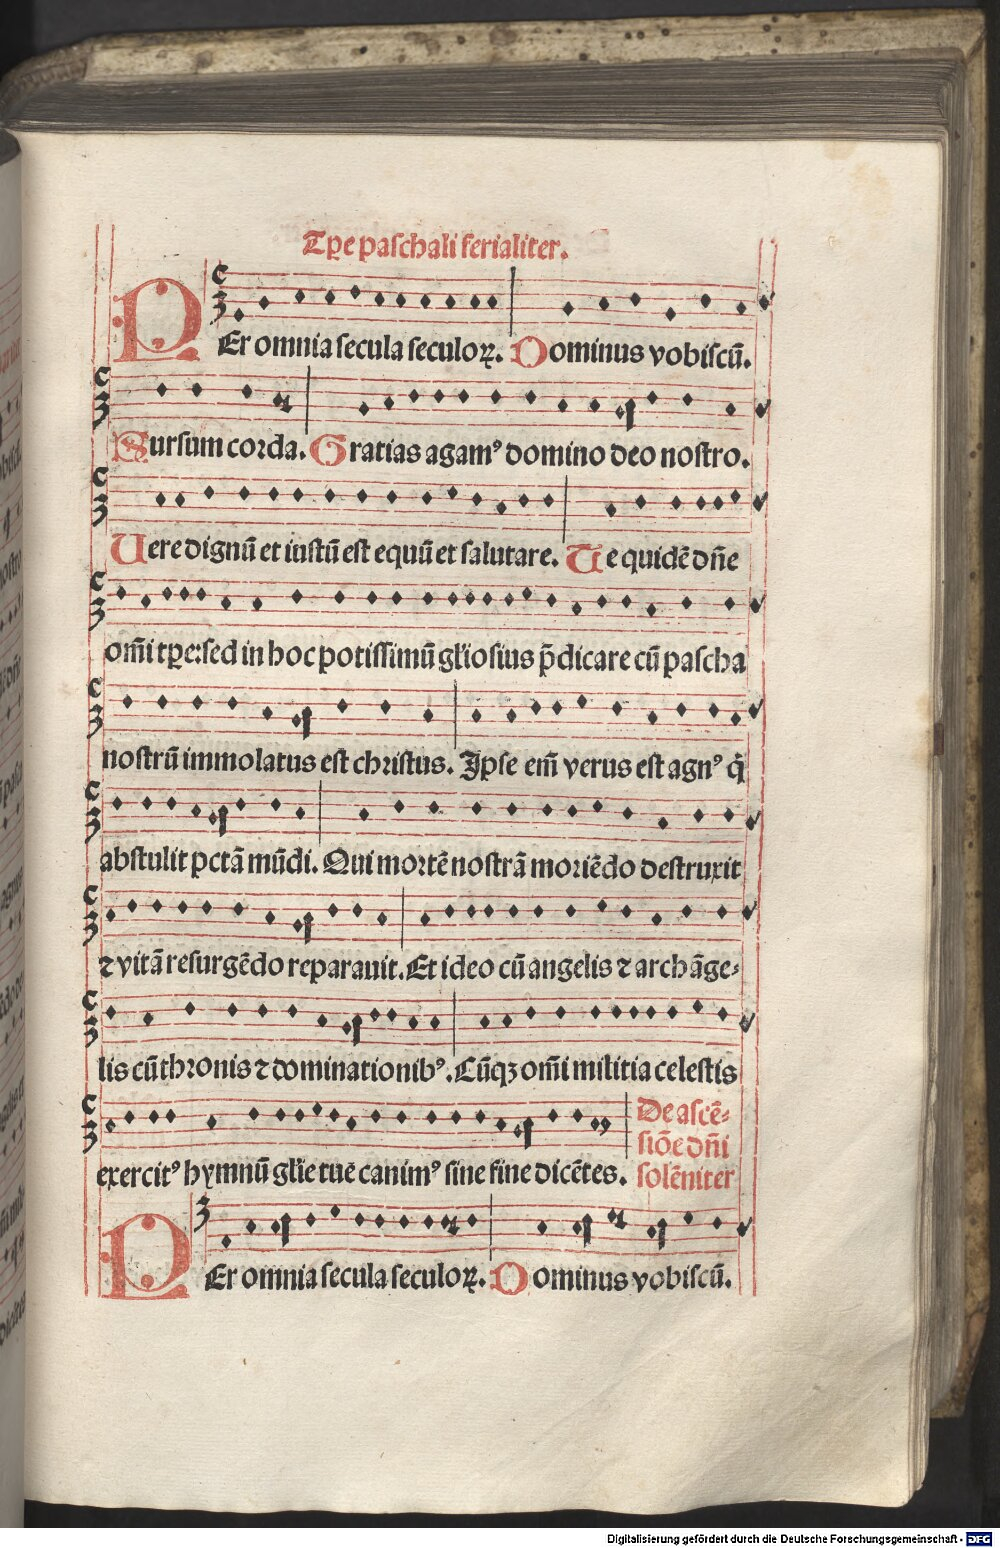 Tꝑe paschali ferialiter.
PEr omnia secula seculoꝝ. Dominus vobiscū.
Sursum corda. Gratias agamꝰ domino deo nostro.
Uere dignū et iustū est equū et salutare. Te quidē dñe
om̄i tꝑe: sed in hoc potissimū gl'iosius p̄dicare cū pascha
nostrū immolatus est christus. Ipse em̄ verus est agnꝰ q̇
abstulit pctā mūdi. Qui mortē nostrā moriēdo destruxit
⁊ vitā resurgēdo reparauit. Et ideo cū angelis ⁊ archāge⸗
lis cū thronis ⁊ dominationibꝰ. Cūqꝫ om̄i militia celestis
exercitꝰ hymnū gl'ie tue canimꝰ sine fine dicētes.
De ascē⸗
siōe dñi
solēniter
PEr omnia secula seculoꝝ. Dominus vobiscū.
Digitalisierung gefördert durch die Deutsche Forschungsgemeinschaft - DFG